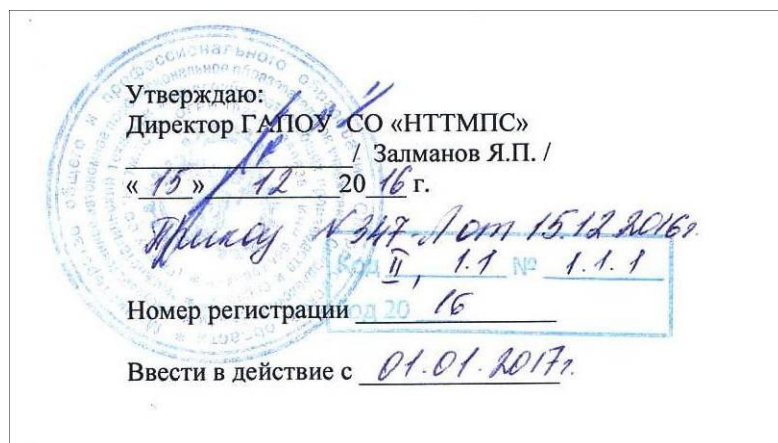 Утверждаю:
Директор ГАПОУ СО «НТТМПС»
/ Залманов Я.П. /
«15» 12 2016 г.
Приказ №347-Л от 15.12.2016г.
Код II, 1.1 № 1.1.1
Номер регистрации
Год 20 16
Ввести в действие с 01.01.2017г.